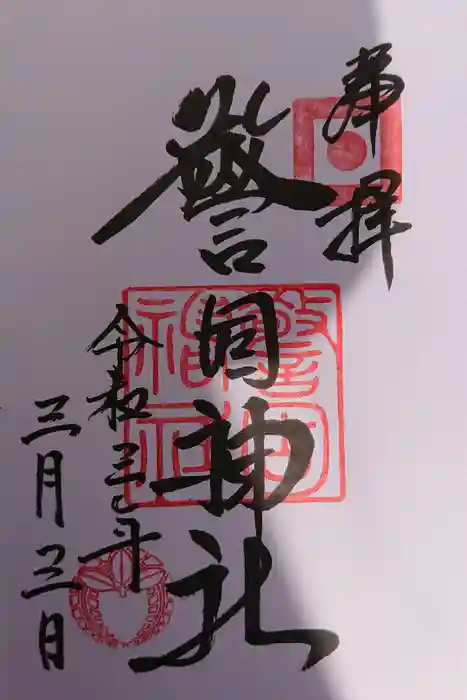 奉拝
警固神社
令和三年
三月三日